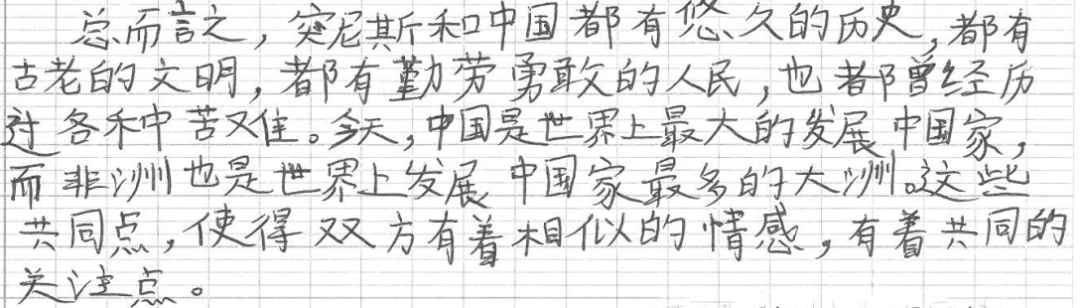 总而言之，突尼斯和中国都有悠久的历史，都有
古老的文明，都有勤劳勇敢的人民，也都曾经历
过各种苦难。今天，中国是世界上最大的发展中国家，
而非洲也是世界上发展中国家最多的大洲。这些
共同点，使得双方有着相似的情感，有着共同的
关注点。